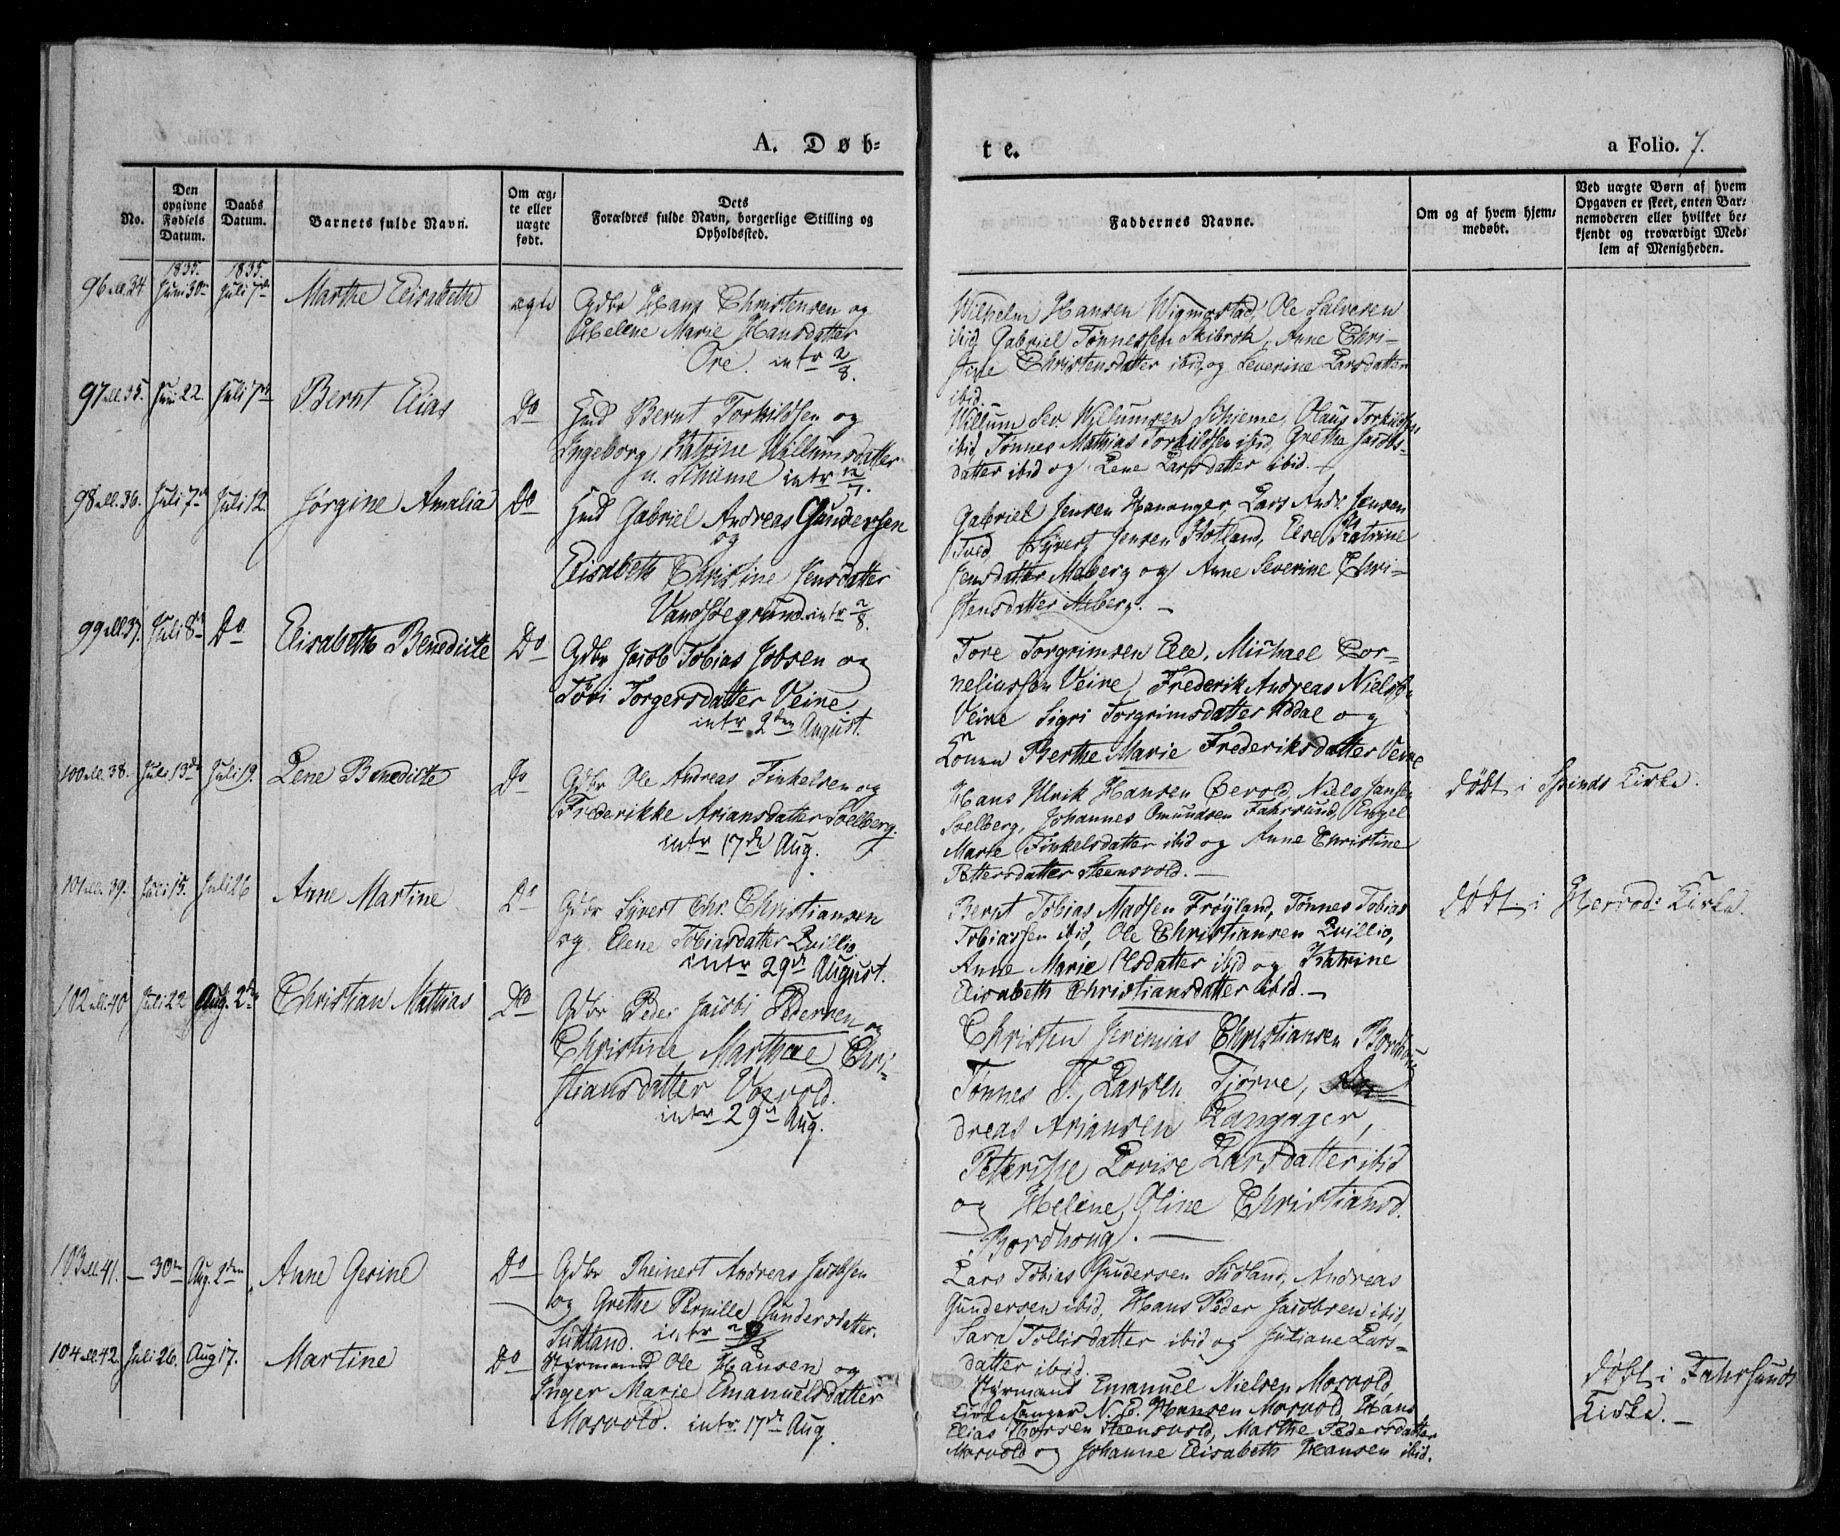 A. Døb-
te.
a Folio. 7.
No.
Den opgivne Fødsels Datum.
Daabs Datum.
Barnets fulde Navn.
Om ægte eller uægte født.
Dets
Forældres fulde Navn, borgerlige Stilling og
Opholdssted.
Faddernes Navne.
Om og af hvem hjemmedøbt.
Ved uægte Børn af hvem
Opgaven er skeet, enten Barnemoderen eller hvilket bekjendt og troværdigt Medlem af Menigheden.
1835. 1835.
96 ell. 34 Juni 30 Juli 7 Marthe Elisabeth ægte Gdbr Hans Christensen og
Abelene Marie Hansdatter
Ore. intr 2/8.
Wilhelm Hansen Wigmostad, Ole Salvesen
ibid, Gabriel Tønnessen Skibrok, Anne Chri-
stine Christensdatter ibid, og Severine Larsdatter
ibid.
97 ell. 35. Juni 22 Juli 7 Bernt Elias Do Hmd Bernt Torkildsen og
Ingeborg Katrine Willumsdatter
intr 12/7.
Willum Willumsen Skjeme, Olaus Torkildsen
ibid, Tønnes Mathias Torkildsen ibid, Grethe Jacobs-
datter ibid og Lene Larsdatter ibid. -
98 ell. 36. Juli 7 Juli 12. Jørgine Amalia Do Hmd Gabriel Andreas Gundersen
og
Elisabeth Christine Jensdatter
Vandsøegrund. intr 2/8.
Gabriel Jensen Hananger, Lars Andr. Jensen
Tved, Syvert Jensen Hotland, Else Katrine
Jensdatter Meberg og Anne Severine Chri-
stensdatter Meberg. -
99 ell 37. Juli 8 Do Elisabeth Benedicte Do Gdbr Jacob Tobias Jobsen og
Tori Torgersdatter Veine.
intr 2den August.
Tore Torgrimsen Elle, Michael Cor-
neliussen Veine, Frederik Andreas Nielsen
Veine Sigri Torgrimsdatter og
Konen Berthe Marie Frederiksdatter Veine
100 ell. 38. Juli 13de Juli 19. Lene Benedicte Do Gdbr Ole Andreas Finkelsen og
Frederikke Ariansdatter Soelberg.
intr 17de Aug.
Hans Ulrik Hansen Øevold, Niels Jansen
Soelberg, Johannes Omundsen Fahrsund, Engel
Marie Finkelsdatter ibid og Anne Christine
Pettersdatter Steensvold. -
døbt i Spinds Kirke.
101 ell. 39. Juli 15. Juli 26 Anne Martine Do Gdbr Syvert Chr. Christiansen
og Elene Tobiasdatter Qvillio
intr 29de August.
Bernt Tobias Madsen Frøyland, Tønnes Tobias
Tobiassen ibid, Ole Christiansen Qvillio,
Anne Marie Olsdatter ibid og Katrine
Elisabeth Christiansdatter ibid. -
døbt i Herrods Kirke.
102 ell. 40 Juli 22 Aug. 2den Christian Mathias Do Gdbr Peder Jacobs Pedersen og
Christine Marthae Chri-
stiansdatter
intr 29de Aug.
Christen Jeremias Christiansen
Tønnes T. Larsen Tjørve, An-
dreas Ariansen Langager,
Lovise Larsdatter ibid
og Helene Oline Christiansd.
Bordhoug. -
103 ell. 41. - 30 Aug. 2den Anne Gesine Do Gdbr Reinert Andreas Jacobsen
og Grethe Pernille Gundersdatter.
Sutland. intr
Lars Tobias Gundersen Sudland, Andreas
Gundersen ibid, Hans Peder Jacobsen ibid,
Sara Tollisdatter ibid og Juliane Lars-
datter ibid.
104 ell. 42. Juli 26. Aug 17. Martine Do Styrmand Ole Hansen og
Inger Marie Emanuelsdatter
Mosvold. intr 17de Aug.
Styrmand Emanuel Nielsen Mosvold
Kirkesanger N. E. Hansen Mosvold, Hans
Elias Thorsen Steensvold, Marthe Pedersdatter
Mosvold og Johanne Elisabeth Hansen ibid.
døbt i Fahrsunds
Kirke. -